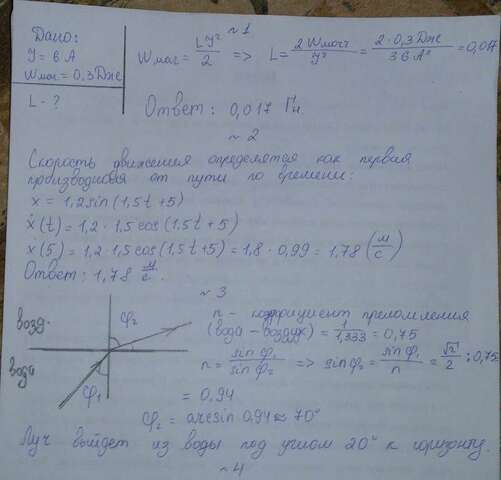 Дано:
I = 6 А
Wмаг = 0,3 Дж
L - ?
~ 1
Wмаг = LI²/2 => L = 2Wмагн/I² = 2·0,3Дж/36А² = 0,017
Ответ: 0,017 Гн
~ 2
Скорость движения определятся как первая
производная от пути по времени:
x = 1,2sin(1,5t+5)
ẋ(t) = 1,2 · 1,5 cos(1,5t+5)
ẋ(5) = 1,2 · 1,5 cos(1,5t+5) = 1,8 · 0,99 = 1,78 (м/с)
Ответ: 1,78 м/с.
~ 3
возд.
вода
φ₂
φ₁
n - коэффициент преломления
(вода - воздух) = 1/1,333 = 0,75
n = sinφ₁/sinφ₂ => sinφ₂ = sinφ₁/n = √2/2 : 0,75
= 0,94
φ₂ = arcsin 0,94 ≈ 70°
Луч выйдет из воды под углом 20° к горизонту.
~ 4